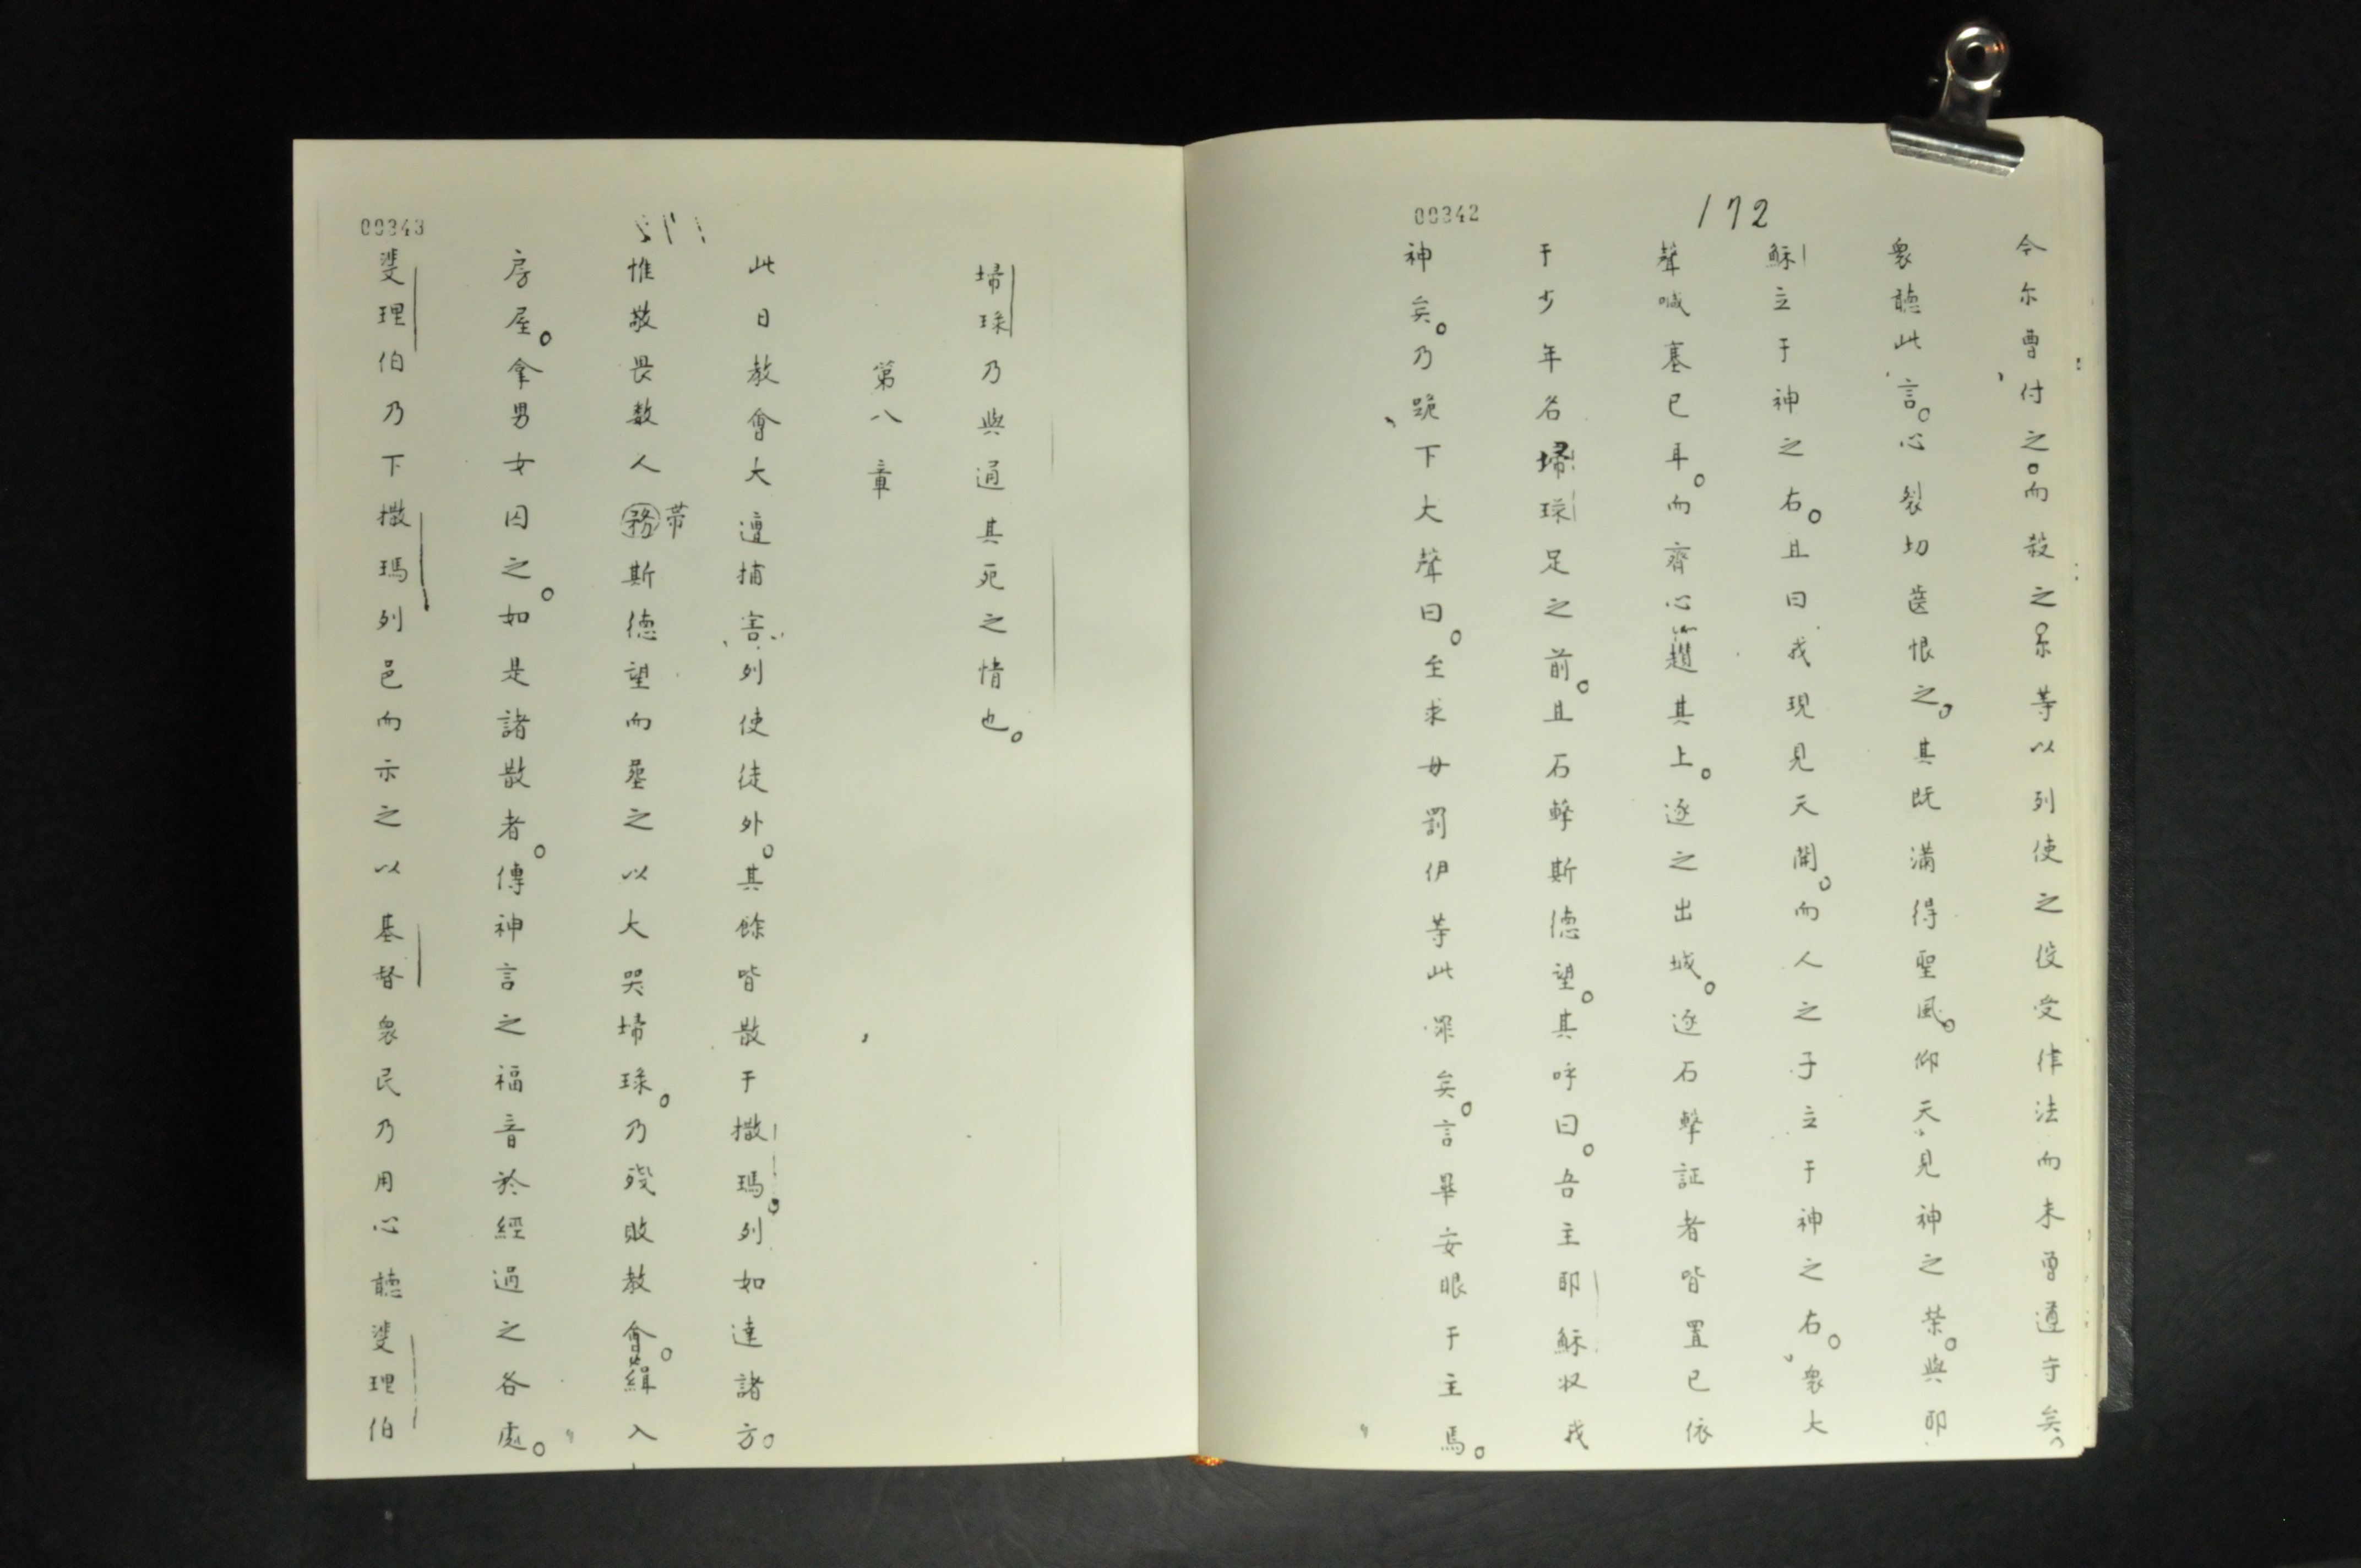 00342
172
今尔曹付之。而殺之。尔等以列使之役受律法而未曾遵守矣。
衆聽此言。心裂切齒恨之。其既滿得聖風。仰天見神之榮。與耶
穌立于神之右。且曰我現見天開。而人之子立于神之右。衆大
聲喊塞已耳。而齊心趲其上。逐之出城。逐石擊証者皆置已依
于少年名埽琭足之前。且石擊斯德望。其呼曰。吾主耶穌收我
神矣。乃跪下大聲曰。至求毋罰伊等此罪矣。言畢安眠于主焉。
00343
埽琭乃與通其死之情也。
第八章
此日教會大遭捕害列使徒外。其餘皆散于撒瑪。列如達諸方。
惟敬畏数人務帯斯德望而塟之以大哭埽琭。乃殘敗教會。緝入
房屋。拿男女囚之。如是諸散者。傳神言之福音於經過之各處。
斐理伯乃下撒瑪列邑而示之以基督衆民乃用心聽斐理伯